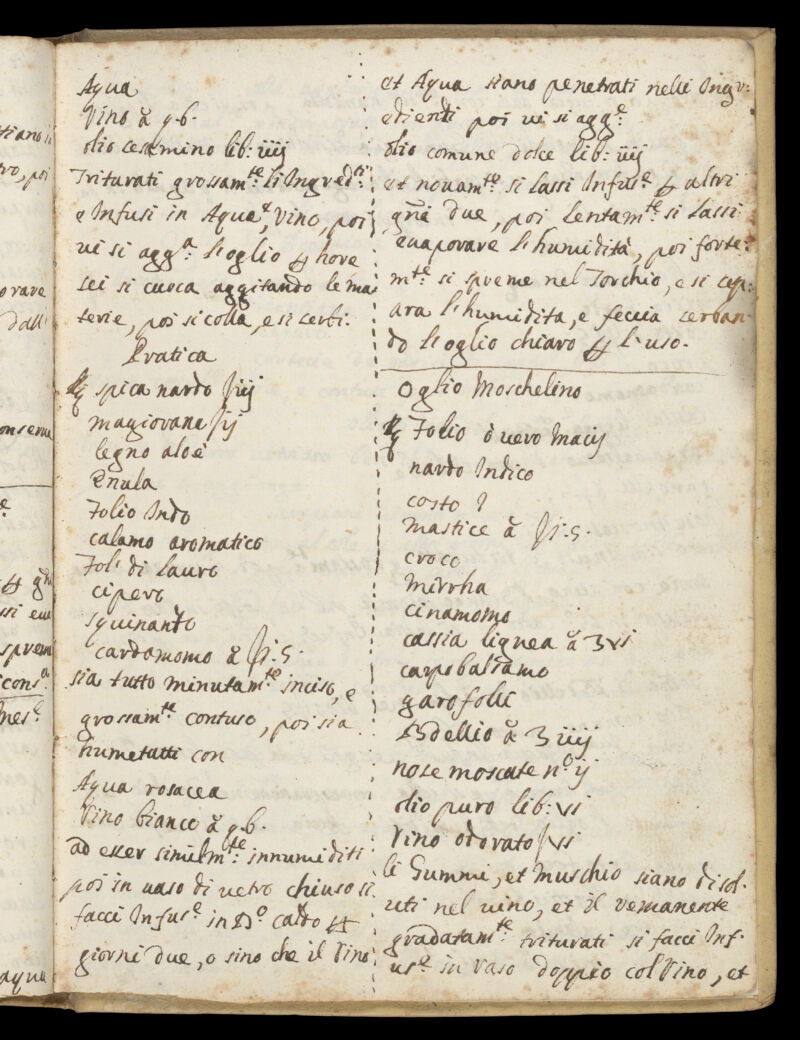 Aqua
Vino ā q.b.
olio cesamino lib: iiij
Triturati grossam.te li Ingred.ti
e Infusi in Aqua, Vino, poi
ui si agg.a l'oglio ꝑ hore
sei si cuoca aggitando le ma
terie, poi si colla, e si cerbi.
Pratica
℞ spica nardo ʒiij
magiorana ʒij
legno aloè
Enula
Folio Indo
calamo aromatico
Fol: di Lauro
cipero
squinanto
cardamomo ā ʒi.s.
sia tutto minutam.te inciso, e
grossam.te contuso, poi sia
humettati con
Aqua rosacea
Vino bianco ā q.b.
ad esser similm.te innumiditi
poi in uaso di uetro chiuso si
facci Infus.e in B.o caldo ꝑ
giorni due, o sino che il Vino
et Aqua siano penetrati nelli Ingr:
edienti poi ui si agg.e
olio comune dolce lib: iiij
et nouam.te si lassi Infus.e ꝑ altri
gñi due, poi lentam.te si lassi
euaporare l'humidità, poi forte:
m.te si spreme nel Torchio, e si cep:
ara l'humidita, e feccia cerban
do l'oglio chiaro ꝑ l'uso.
Oglio Moschelino
℞ Folio ò uero Macij
nardo Indico
costo
Mastice ā ʒi.s.
croco
Mirrha
cinamomo
cassia lignea ā ʒvi
carpobalsamo
garofoli
Bdellio ā ʒ iiij
nose moscate n.o ij
olio puro lib: vi
Vino odorato ʒvi
li Gummi, et Muschio siano disol:
uti nel uino, et il remanente
gradatam.te triturati si facci Inf:
us.e in Vaso doppio col Vino, et